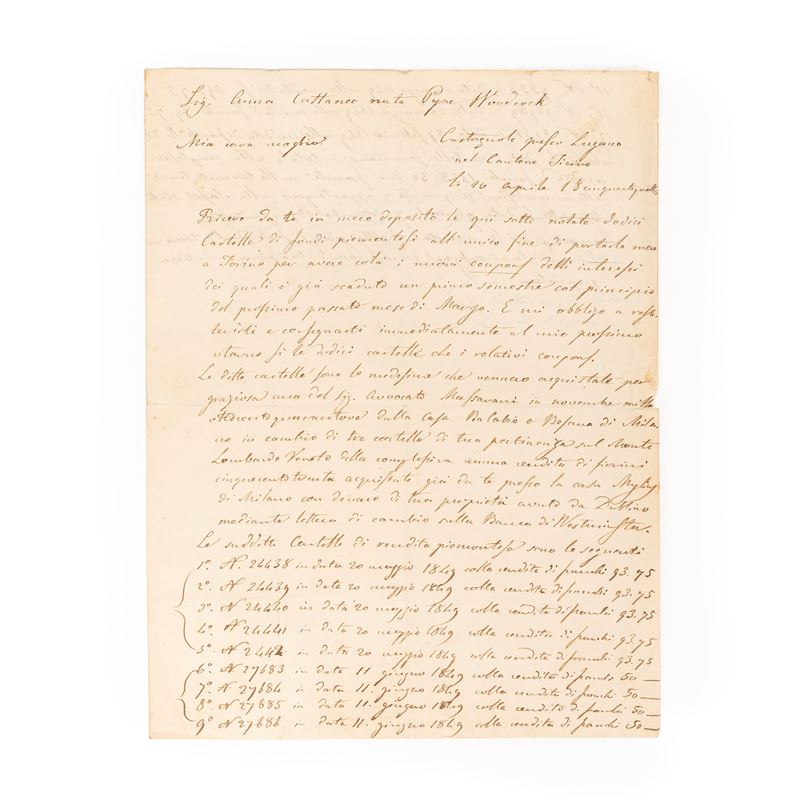 Sig. Anna Cattaneo nata Pyne Woodcock
Mia cara moglie
Castagnola presso Lugano
nel Cantone Ticino
li 10 Aprile 18cinquantiquattro
Ricevo da te in mero deposito le qui sotto notate dodici
Cartelle di fondi piemontesi all'unico fine di portarle meco
a Torino per avere colà i nuovi coupons delli interessi
dei quali è già scaduto un primo semestre col principio
del prossimo passato mese di Marzo. E mi obbligo a resti-
tuirli e consegnarti immediatamente al mio prossimo
ritorno sì le dodici cartelle che i relativi coupons.
Le dette cartelle sono le medesime che vennero acquistate per
graziosa cura del Sig. Avvocato Massarani in novembre mille
ottocentoquarantanove dalla Casa Balabio e Besana di Mila-
no in cambio di tre cartelle di tua pertinenza sul Monte
Lombardo Veneto della complessiva annua rendita di fiorini
cinquecentotrenta acquistate già da te presso la casa Mylius
di Milano con denaro di tua proprietà avuto da Dublino
mediante lettera di cambio sulla Banca di Westminster.
Le suddette Cartelle di rendita piemontese sono le seguenti
1.º N. 24438 in data 20 maggio 1849 colla rendita di franchi 93.75
2.º N 24439 in data 20 maggio 1849 colla rendita di franchi 93.75
3.º N 24440 in data 20 maggio 1849 colla rendita di franchi 93.75
4.º N 24441 in data 20 maggio 1849 colla rendita di franchi 93.75
5.º N 2442 in data 20 maggio 1849 colla rendita di franchi 93.75
6.º N 27683 in data 11 giugno 1849 colla rendita di franchi 50 —
7.º N 27684 in data 11. giugno 1849 colla rendita di franchi 50 —
8.º N 27685 in data 11. giugno 1849 colla rendita di franchi 50 —
9.º N 27686 in data 11. giugno 1849 colla rendita di franchi 50 —